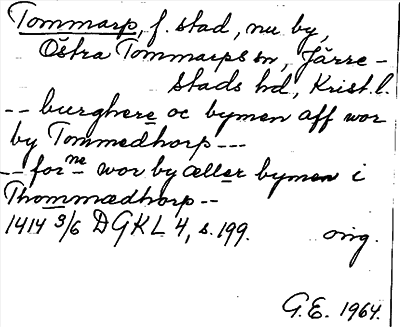 Tommarp, f. stad, nu by,
Östra Tommarps sn, Järre-
stads hd, Krist.l.
-- burghere oc bymen aff wor
by Tommedhorp ---
-- for ne wor by æller bymen i
Thommædhorp --
1414 3/6 DGKL 4, s. 199. orig.
G.E. 1964.